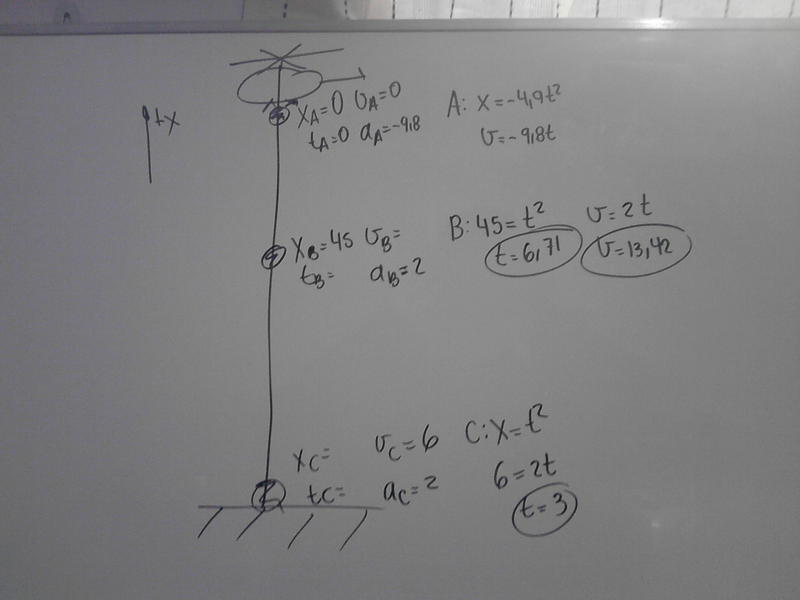 +x
x_A=0 v_A=0
t_A=0 a_A=-9,8
A: x=-4,9t²
v=-9,8t
x_B=45 v_B=
t_B= a_B=2
B: 45=t² v=2t
t=6,71 v=13,42
x_C= v_C=6
t_C= a_C=2
C: x=t²
6=2t
t=3